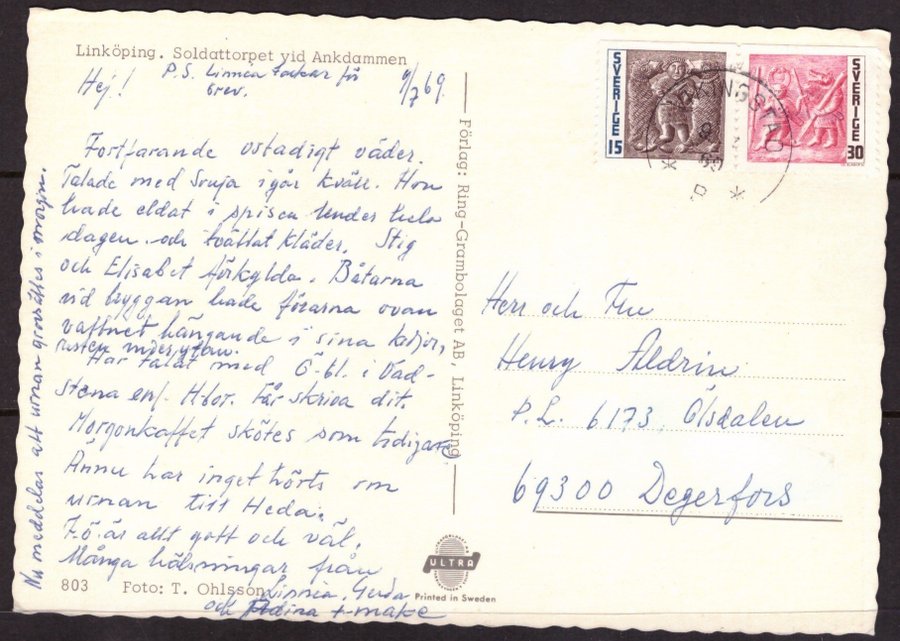 Linköping. Soldattorpet vid Ankdammen
P.S. Linnea tackar för
brev.
Hej!
9/7 69.
Fortfarande ostadigt väder.
Talade med Svea igår kväll. Hon
hade eldat i spisen under hela
dagen och tvättat kläder. Stig
och Elisabet förkylda. Båtarna
vid bryggan hade förarna ovan
vattnet hängande i sina kedjor,
resten under ytan.
Har talat med Ö-bl. i Vad-
stena enl. Hbor. Får skriva dit.
Morgonkaffet skötes som tidigare.
Ännu har inget hörts om
urnan till Heda.
F.ö. är allt gott och väl.
Många hälsningar från
Linnea, Gerda
och + make
Nu meddelas att urnan gravsättes i morgon.
803 Foto: T. Ohlsson
Förlag: Ring-Grambolaget AB, Linköping
ULTRA
Printed in Sweden
SVERIGE 15
SVERIGE 30
VIKINGSTAD
Herr och Fru
Henry Aldrin
P.L. 6173, Ölsdalen
69300 Degerfors